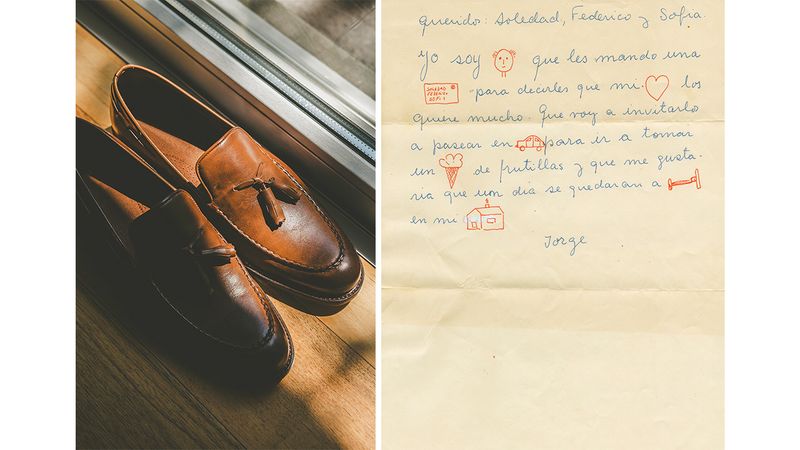 Querido: Soledad, Federico y Sofia.
Yo soy que les mando una
SOLEDAD
FEDERICO
SOFI
para decirles que mi los
quiere mucho. Que voy a invitarlo
a pasear en para ir a tomar
un de frutillas y que me gusta-
ria que un dia se quedaran a
en mi
Jorge